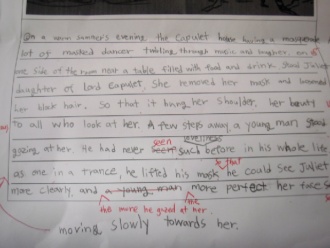 On a warm summer's evening the Capulet house having a masquerade
lot of masked dancer twirling through music and laughter, on
one side of the room near a table filled with food and drink stood Juliet
daughter of lord Capulet, She removed her mask and loosened
her blak hair. So that it hung her shoulder, her beauty
to all who look at her. A few steps away a young man stood
loveliness
gazing at her. He had never seen such before in his whole life
seen
that
as one in a trance, he lifted his mask he could see Juliet
more clearly, and a young man more perfect her face
the
the more he gazed at her.
moving slowly towards her.